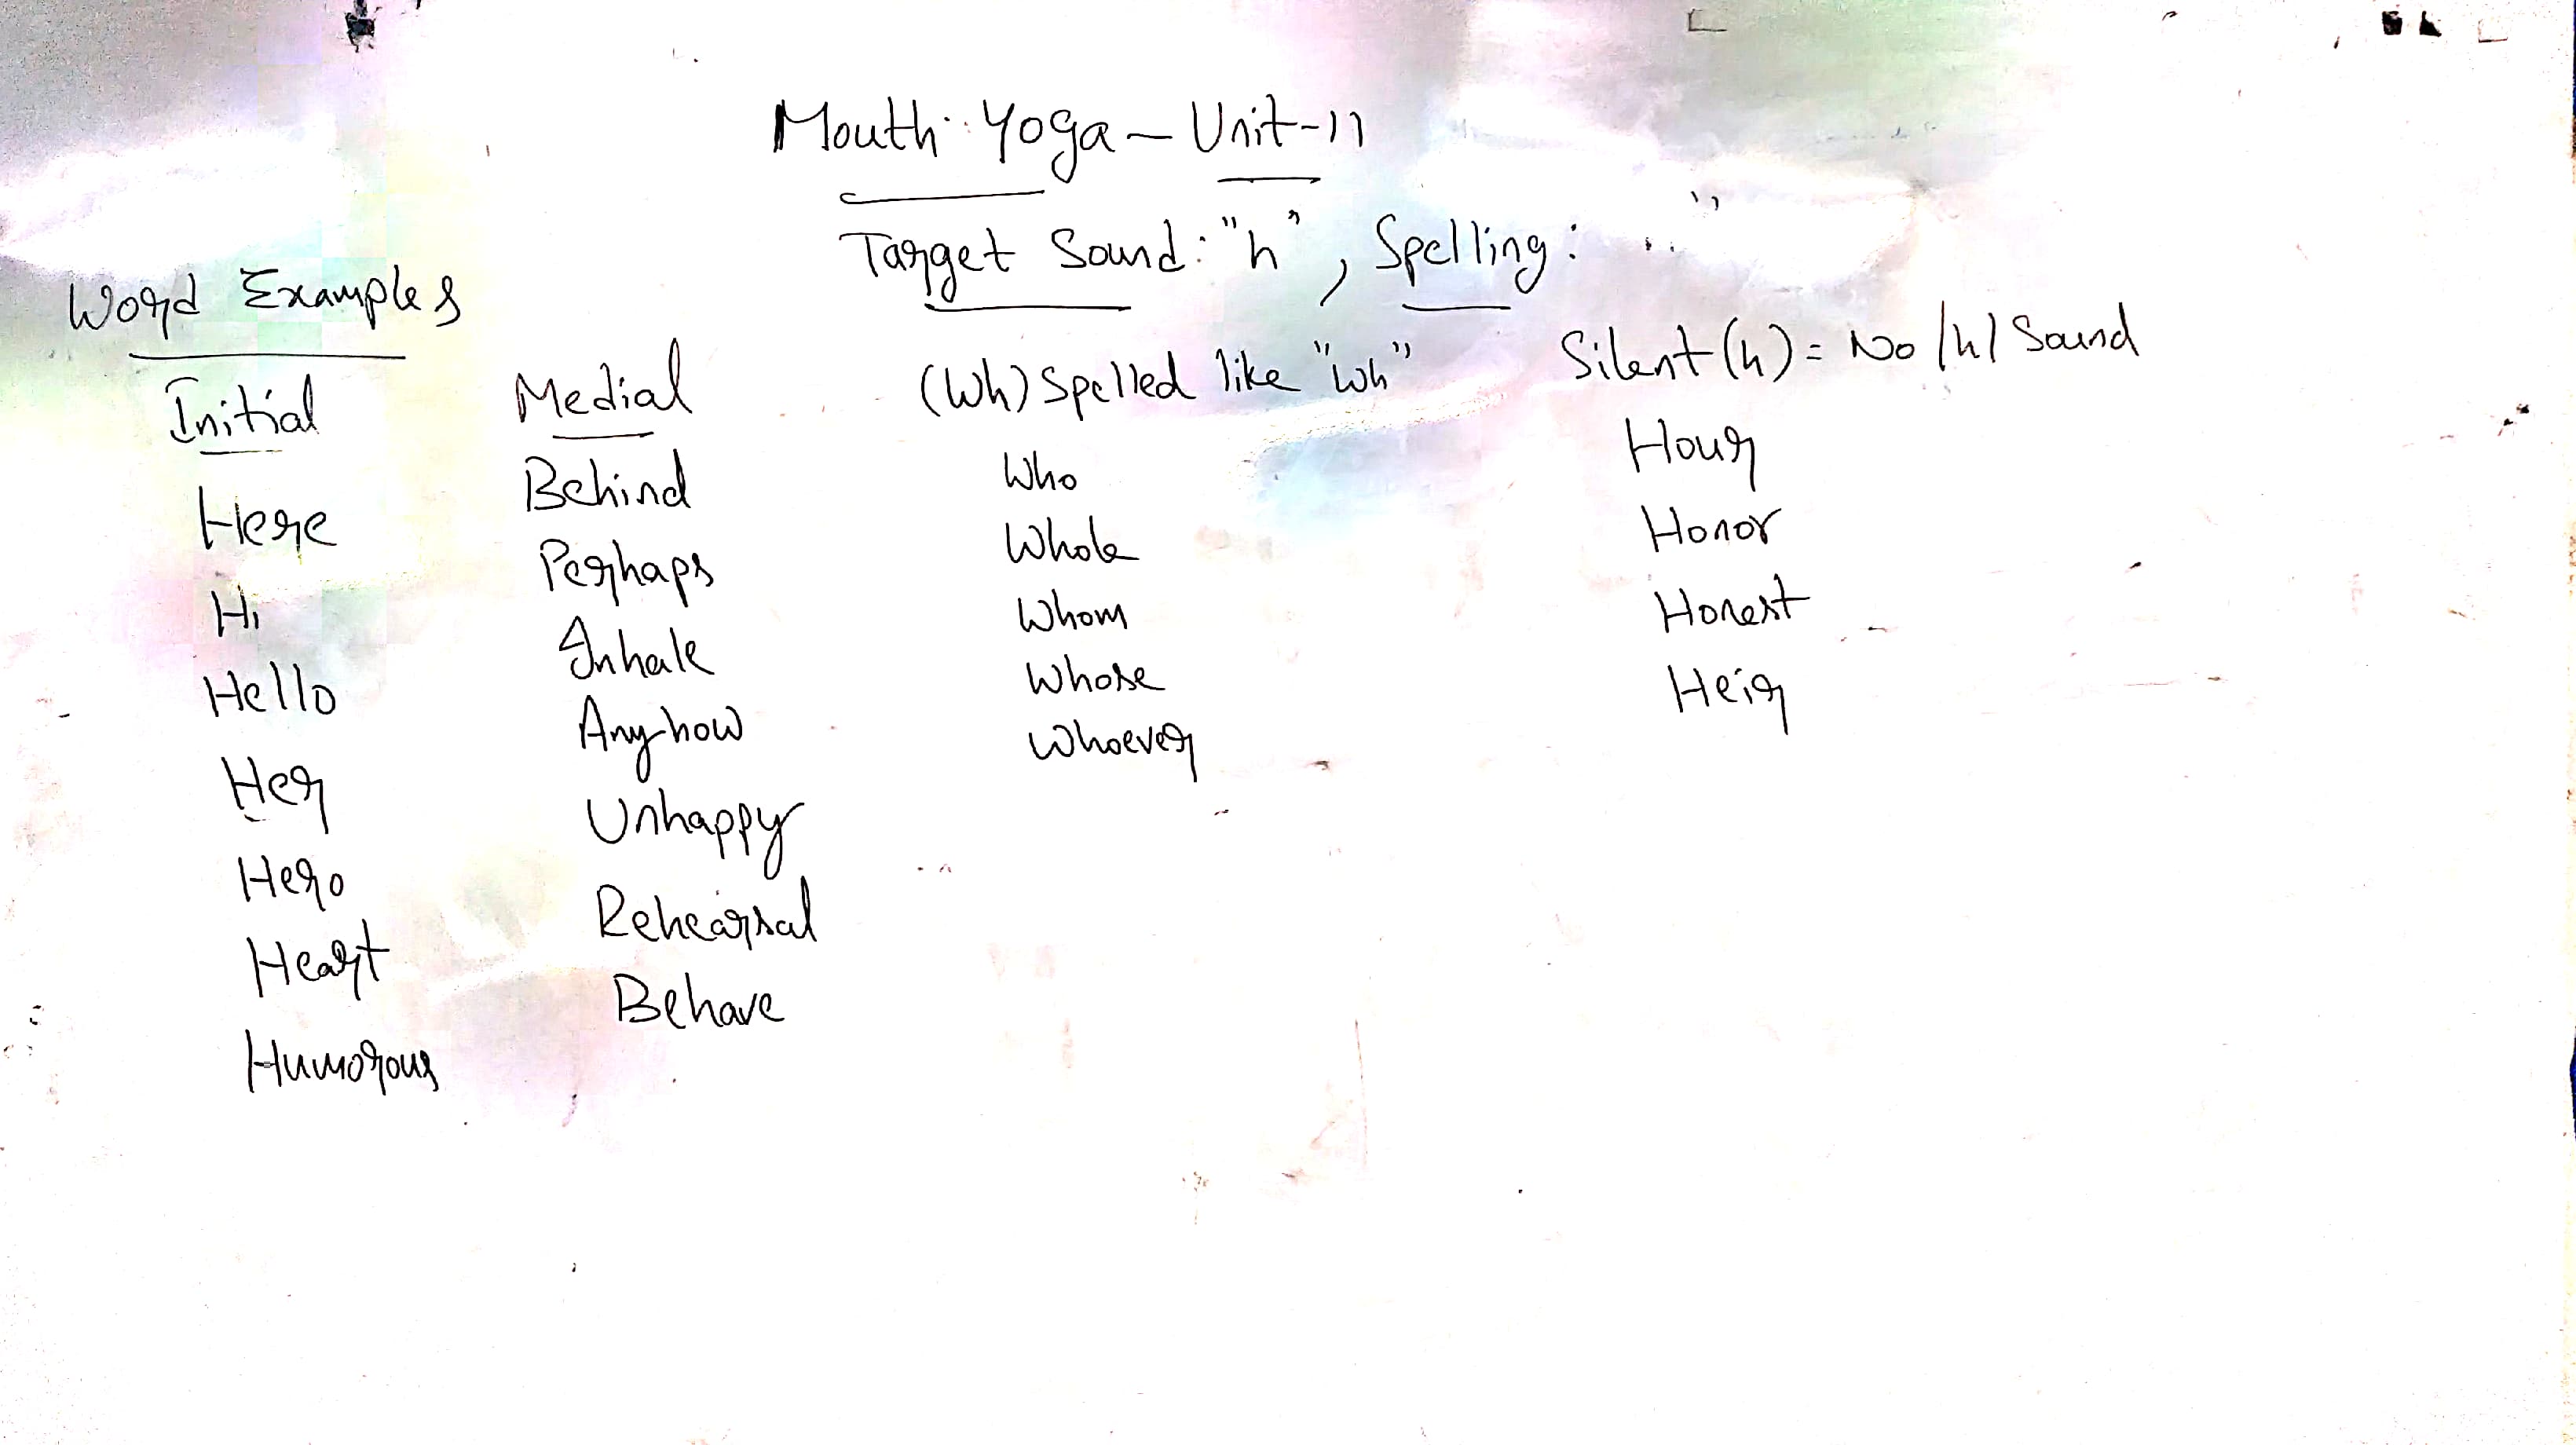 Mouth Yoga - Unit-11
Target Sound: "h", Spelling: "
Word Examples
Initial
Here
Hi
Hello
Her
Hero
Heart
Humorous
Medial
Behind
Perhaps
Inhale
Anyhow
Unhappy
Rehearsal
Behave
(Wh) Spelled like "wh"
Who
Whole
Whom
Whose
Whoever
Silent (h) = No /h/ Sound
Hour
Honor
Honest
Heir